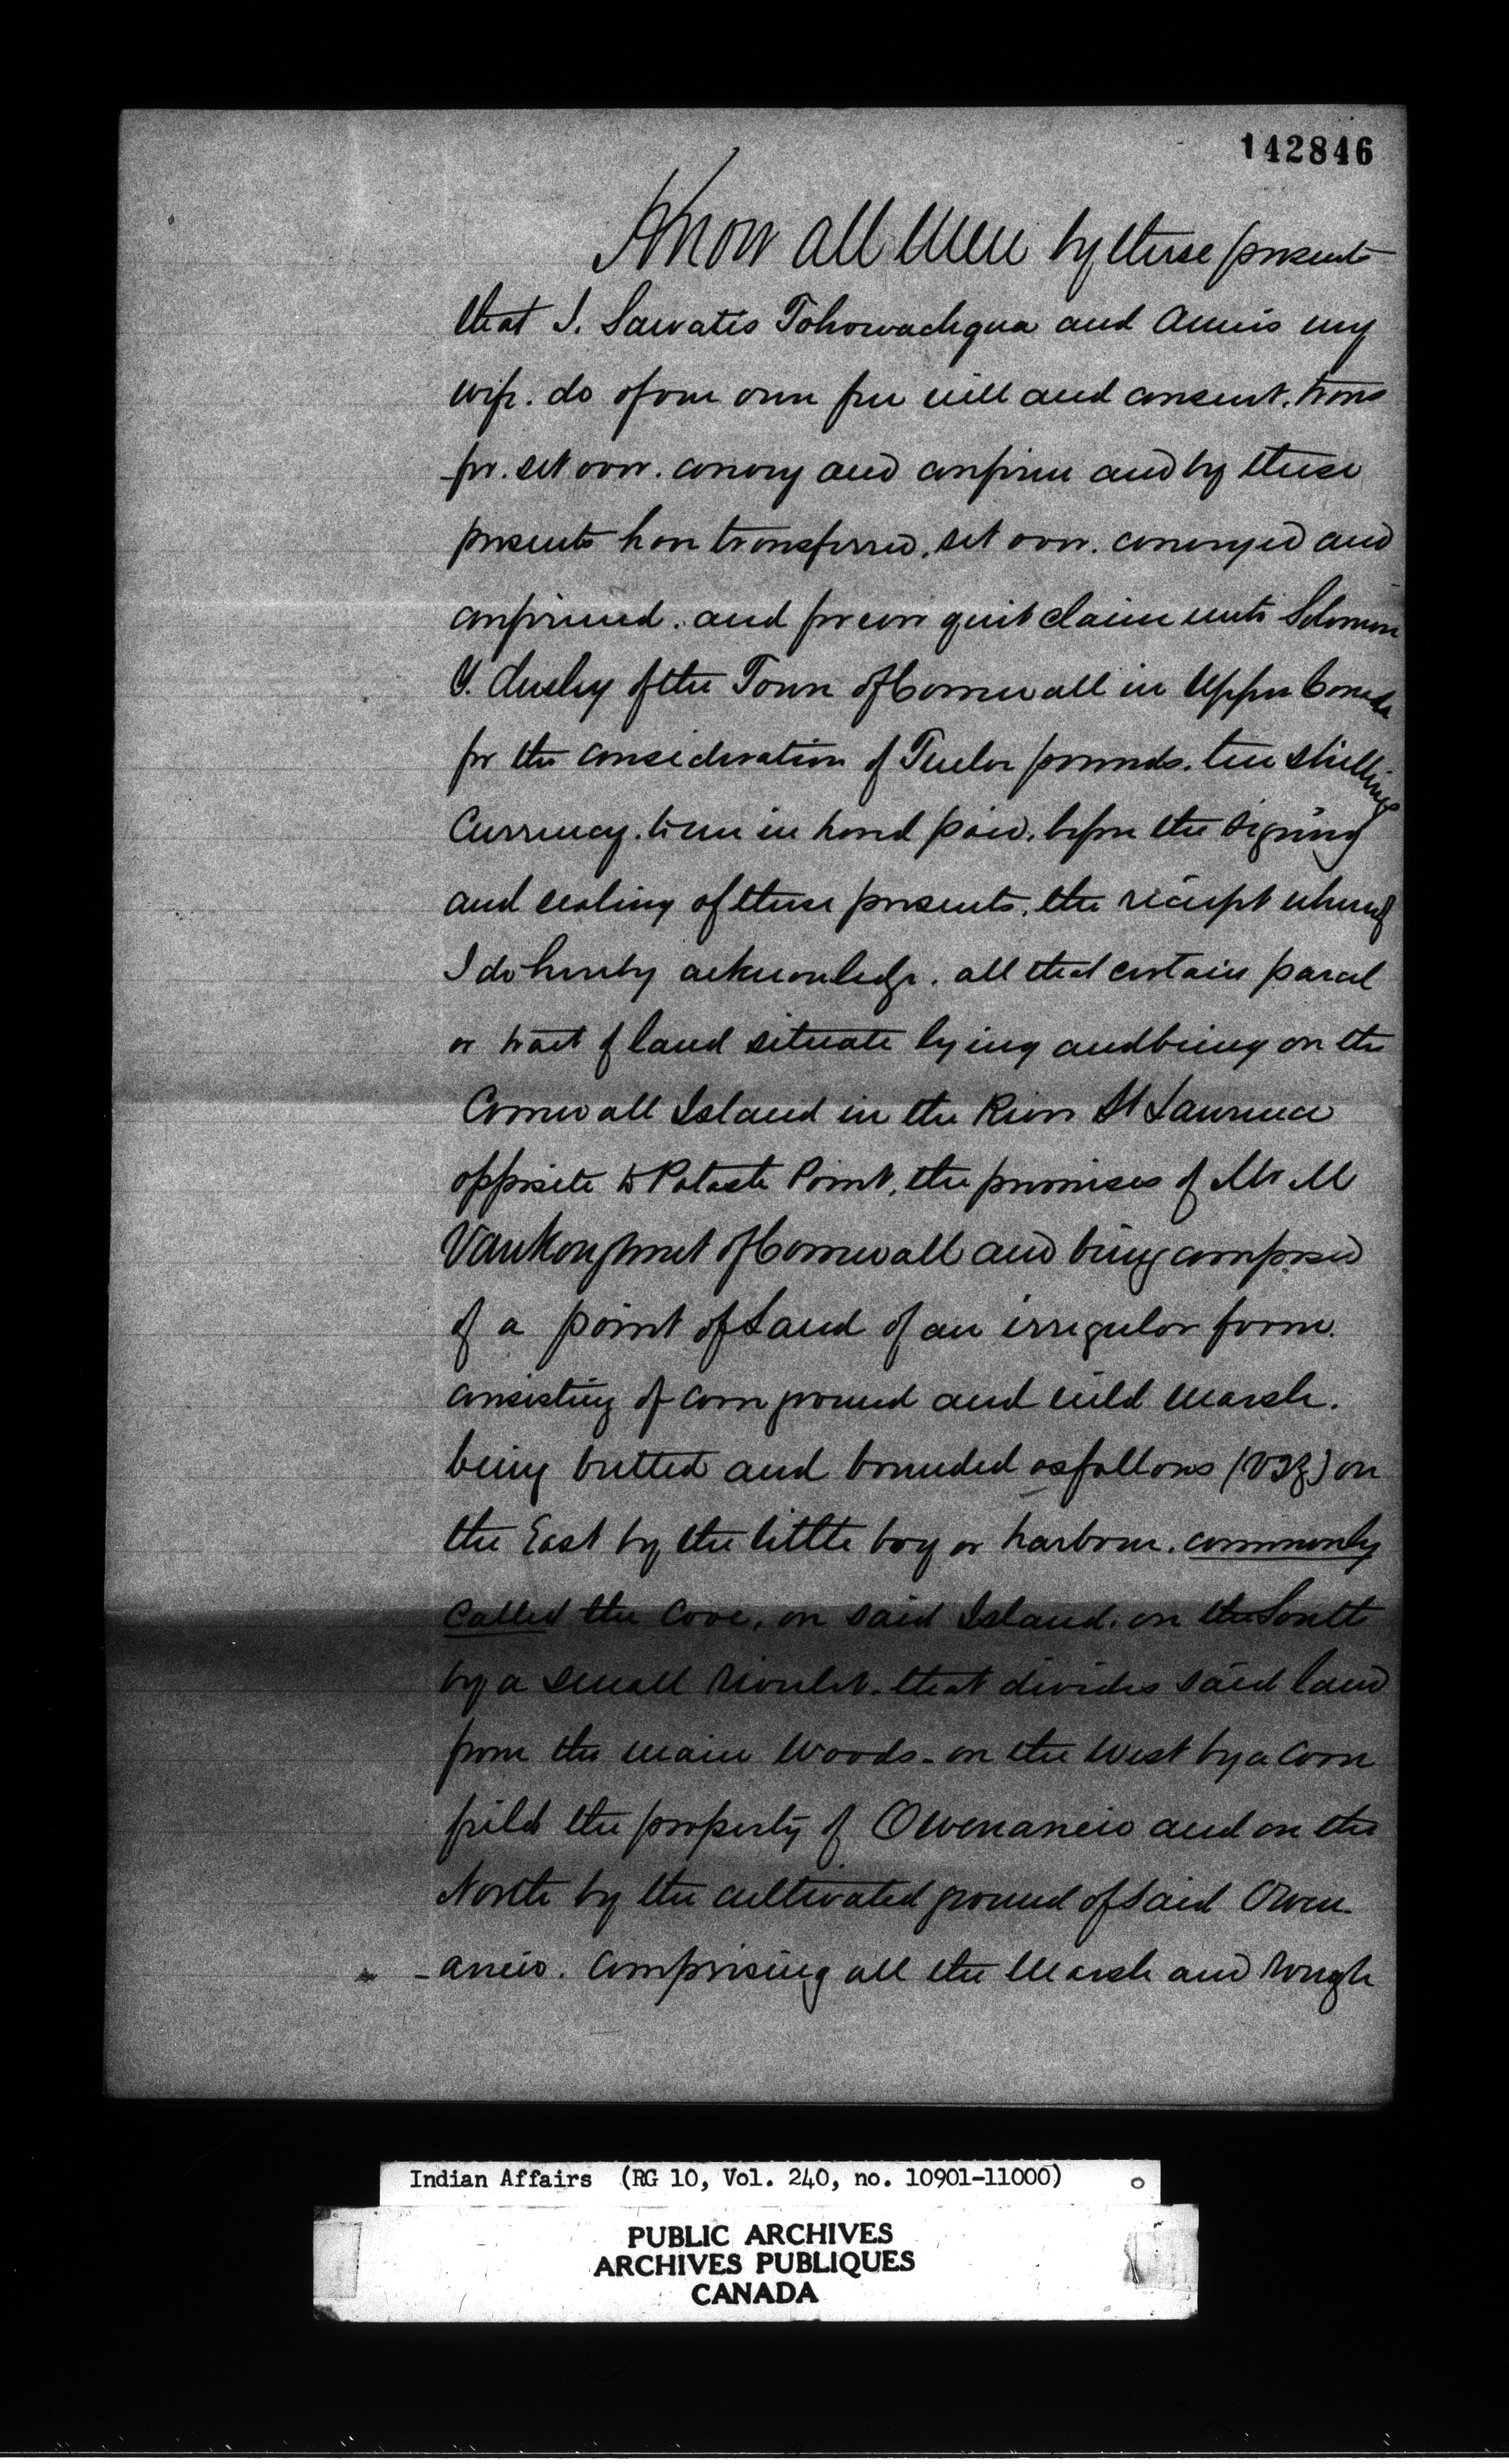 142846
Know all Men by these presents
that I. Sawatis Tohowachqua and Annis my
wife. do of our own free will and consent. trans
-fer. set over. convey and confirm and by these
presents have transferred. set over. conveyed and
confirmed. and forever quit claim unto Solomon
Y. Chesley of the Town of Cornwall in Upper Canada
for the consideration of Twelve pounds. ten shillings
Currency. to me in hand paid. before the signing
and sealing of these presents. the receipt whereof
I do hereby acknowledge. all that certain parcel
or tract of land situate lying and being on the
Cornwall Island in the River St Lawrence
opposite to Potash Point. the premises of Mr M
VanKoughnet of Cornwall and being composed
of a point of Land of an irregular form.
consisting of corn ground and wild marsh.
being butted and bounded as follows (VIZ) on
the East by the little bay or harbour. commonly
called the Cove. on said Island. on the South
by a small rivulet. that divides said land
from the main Woods - on the West by a Corn
field the property of Owenaneio and on the
North by the cultivated ground of said Owen-
-aneio. Comprising all the Marsh and rough
Indian Affairs (RG 10, Vol. 240, no. 10901-11000)
PUBLIC ARCHIVES
ARCHIVES PUBLIQUES
CANADA